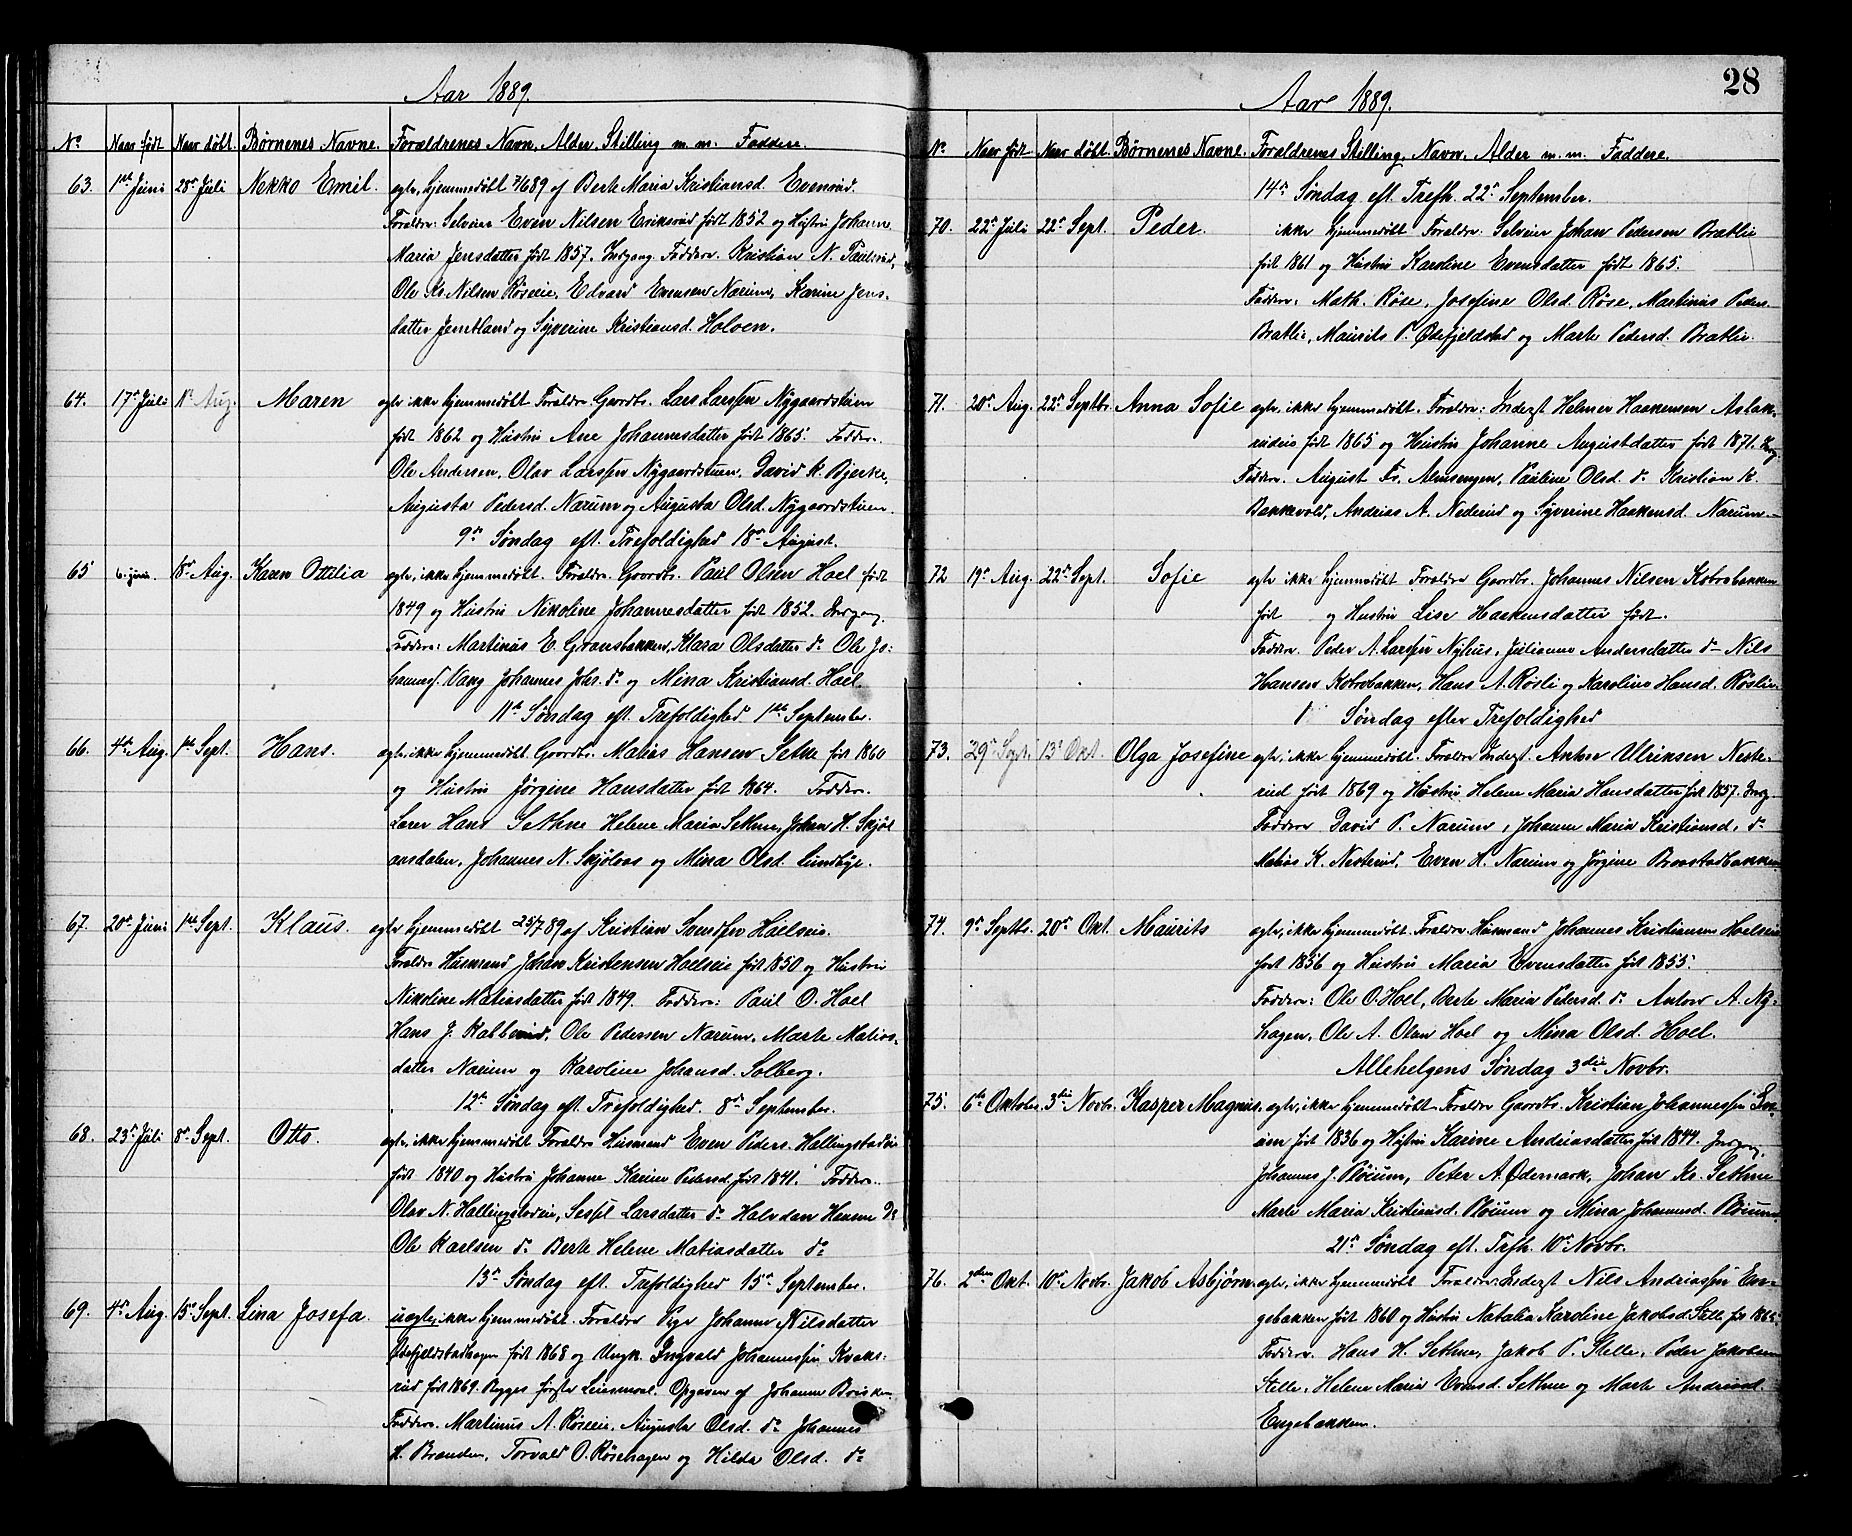 Aar 1889.
No Naar født Naar døbt. Børnenes Navne. Forældrenes Navn, Alder, Stilling m. m. Faddere.
63. 1ste Juni 28de Juli Nekko Emil. egte, hjemmedøbt 7/6 89 af Berte Maria Kristiansd. Evenrud.
Forældre: Selveier Even Nilsen Eriksrud født 1852 og Hustru Johanne
Maria Jensdatter født 1857. Indgang. Faddere. Kristian N. Paulsrud,
Ole Kr. Nilsen Røseie, Edvard Evensen Narum, Karine Jens-
datter Jemtland og Syverine Kristiansd. Holoen.
64. 17de Juli 11te Aug. Maren egte ikke hjemmedøbt Forældre. Gaardbr. Lars Larssen Nygaardstuen
født 1862 og Hustru Ane Johannesdatter født 1865. Faddere.
Ole Andersen, Olav Larssen Nygaardstuen, David K. Bjerke,
Augusta Pedersd. Narum og Augusta Olsd. Nygaardstuen.
9de Søndag eft. Trefoldighed 18de August.
65 6. juni. 18de Aug. Karen Ottilia egte, ikke hjemmedøbt. Forældre. Gaardbr. Paul Olsen Hoel født
1849 og Hustru Nikoline Johannesdatter født 1852. Indgang.
Faddere: Martinus E. Granebakken, Klara Olsdatter do Ole Jo-
hannes. Vang Johannes Johs. do og Mina Kristiansd. Hoel.
11te Søndag eft. Trefoldighed 1ste September.
66. 4de Aug. 1ste Sept. Hans. egte, ikke hjemmedøbt Gaardbr. Matias Hansen Sethne født 1860
og Hustru Jørgine Hansdatter født 1864. Faddere.
Lærer Hans Sethne Helene Maria Sethne, Johan H. Skjøl
aasdalen, Johannes N. Skjølaas og Mina Olsd. Lundbye.
67. 20de Juni 1ste Sept. Klaus. egte hjemmedøbt 25/7 89 af Kristian Svendsen Hoelseie.
Forældre Husmand Johan Kristensen Hoelseie født 1850 og Hustru
Nikoline Matiasdatter født 1849. Faddere: Paul O. Hoel
Hans J. Kabberud, Ole Pedersen Narum, Marte Matias-
datter Narum og Karoline Johansd. Solberg.
12te Søndag eft. Trefoldighed. 8de September.
68. 23de Juli 8de Sept. Otto. egte, ikke hjemmedøbt Forældre Husmand Even Peders. Hallingstadeie
født 1840 og Hustru Johanne Karine Pedersd. født 1841. Faddere.
Olav N. Hallingstadeie, Sessel Larsdatter do Halvdan Hansen do
Ole Karlsen do Berte Helene Matiasdatter do
13de Søndag eft. Trefoldighed 15de September.
69. 4de Aug. 15de Sept. Lina Josefa. uegte, ikke hjemmedøbt. Forældre Pige Johanne Nilsdatter
Ødefjeldstadhagen født 1868 og Ungk. Ingvald Johannessen Kvaks-
rud født 1869. Begges første Leiermaal. Opgaven af Johanne
Faddere. Martinus A. Røseie, Augusta Olsd. do Johannes
H. Braaden, Torvald O. Røsehagen og Hilda Olsd. do
28
Aar 1889.
No Naar født. Naar døbt. Børnenes Navne. Forældrenes Stilling, Navn, Alder m. m. Faddere.
14de Søndag eft. Trefh. 22de September.
70. 22de Juli 22de Sept. Peder. ikke hjemmedøbt Forældre. Selveier Johan Pedersen Brætlie
født 1861 og Hustru Karoline Evensdatter født 1865.
Faddere. Math. Røse, Josefine Olsd. Røse, Martinus Peders.
Brætlie, Maurits P. Ødefjeldstad og Marte Pedersd. Brætlie.
71. 20de Aug. 22de Septb. Anna Sofie egte, ikke hjemmedøbt. Forældre: Inderst Helmer Haakensen Aslak-
rudeie født 1865 og Hustru Johanne Augustdatter født 1871. Indg.
Faddere. August Fr. Almsengen, Pauline Olsd. do Kristian K.
Bakkevold, Andreas A. Nederud og Syverine Haakensd. Narum.
72 19de Aug. 22de Sept. Sofie egte ikke hjemmedøbt Forældre Gaardbr. Johannes Nilsen Kobrobakken
født og Hustru Lise Haakensdatter født.
Faddere. Peder A. Larssen Nyhus, Julianne Andersdatter do Nils
Hansen Kobrobakken, Hans A. Røsli og Karoline Hansd. Røslie.
1 Søndag efter Trefoldighed
73. 29de Sept. 13de Okt. Olga Josefine egte, ikke hjemmedøbt. Forældre Inderst. Anton Ulriksen Neste-
rud født 1869 og Hustru Helene Maria Hansdatter født 1857. Indg.
Faddere David P. Narum, Johanne Maria Kristiansd. do
Matias K. Nesterud, Even H. Narum og Jørgine Braastadbakken
74. 9de Septb. 20de Okt. Maurits egte, ikke hjemmedøbt. Forældre Husmand Johannes Kristiansen Hoelseie
født 1856 og Hustru Maria Evensdatter født 1855.
Faddere: Ole O. Hoel, Berte Maria Pedersd. do Anton A. Ny-
hagen, Ole A. Olsen Hoel og Mina Olsd. Hoel.
Allehelgens Søndag 3die Novbr.
75. 6te Oktober 3die Novbr. Kasper Magnus. egte, ikke hjemmedøbt Forældre Gaardbr. Kristian Johannessen
født 1836 og Hustru Karine Andreasdatter født 1844. Indgang.
Johannes J. Pløium, Peter A. Ødemark, Johan Kr. Sethne
Marte Maria Kristiansd. Pløium og Mina Johannesd. Pløium.
21de Søndag eft. Trfh. 10de Novbr.
76. 2den Okt. 10de Novbr. Jakob Asbjørn egte, ikke hjemmedøbt Forældre: Inderst Nils Andreassen En-
gebakken født 1860 og Hustru Natalia Karoline Jakobsd. Stelle født 1865.
Faddere. Hans H. Sethne, Jakob P. Stelle, Peder Jakobsen
Stelle, Helene Maria Evensd. Sethne og Marte Andreasd.
Engebakken.